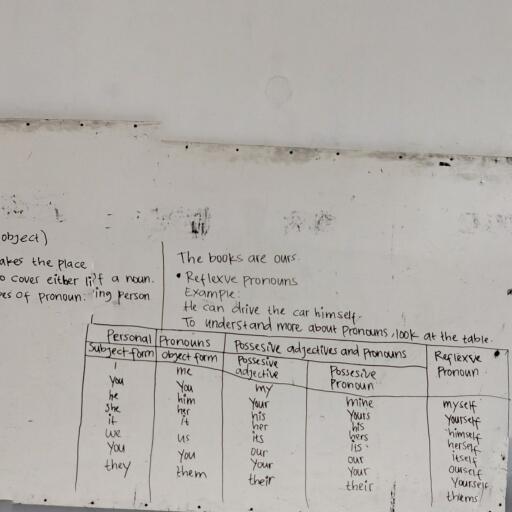 object)
akes the place
o cover either li f a noun.
es of pronoun: ing person
The books are ours.
• Reflexve pronouns
Example:
He can drive the car himself.
To understand more about pronouns, look at the table.
Personal Pronouns Possesive adjectives and pronouns Reflexsve Pronoun
Subject form object form Possesive adjective Possesive Pronoun
I me my mine myself
you you your yours yourself
he him his his himself
she her her hers herself
it it its its itself
we us our our ourself
you you your your yourself
they them their their thems